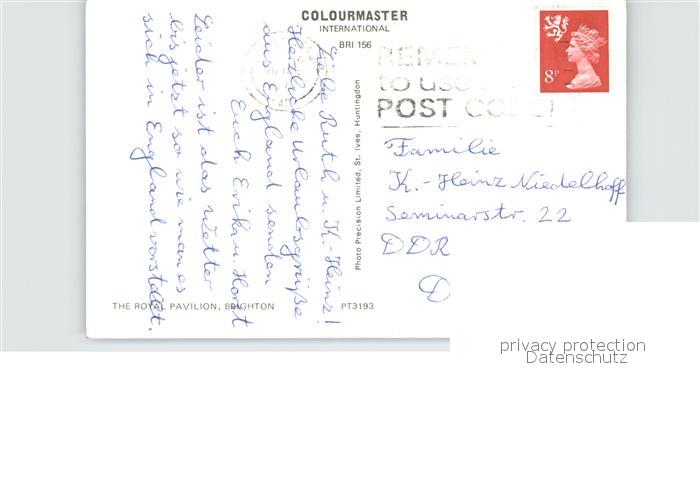 COLOURMASTER
INTERNATIONAL
BRI 156
Liebe Ruth u. K.-Heinz!
Herzliche Urlaubsgrüße
aus England senden
Euch Erika u. Horst
Leider ist das Wetter
bis jetzt so wie man es
sich in England vorstellt.
THE ROYAL PAVILION, BRIGHTON
PT3193
Photo Precision Limited, St. Ives, Huntingdon
REMEM
to use
POST CODE
8P
Familie
K.-Heinz Niedelhoff
Seminarstr. 22
DDR
D
privacy protection
Datenschutz